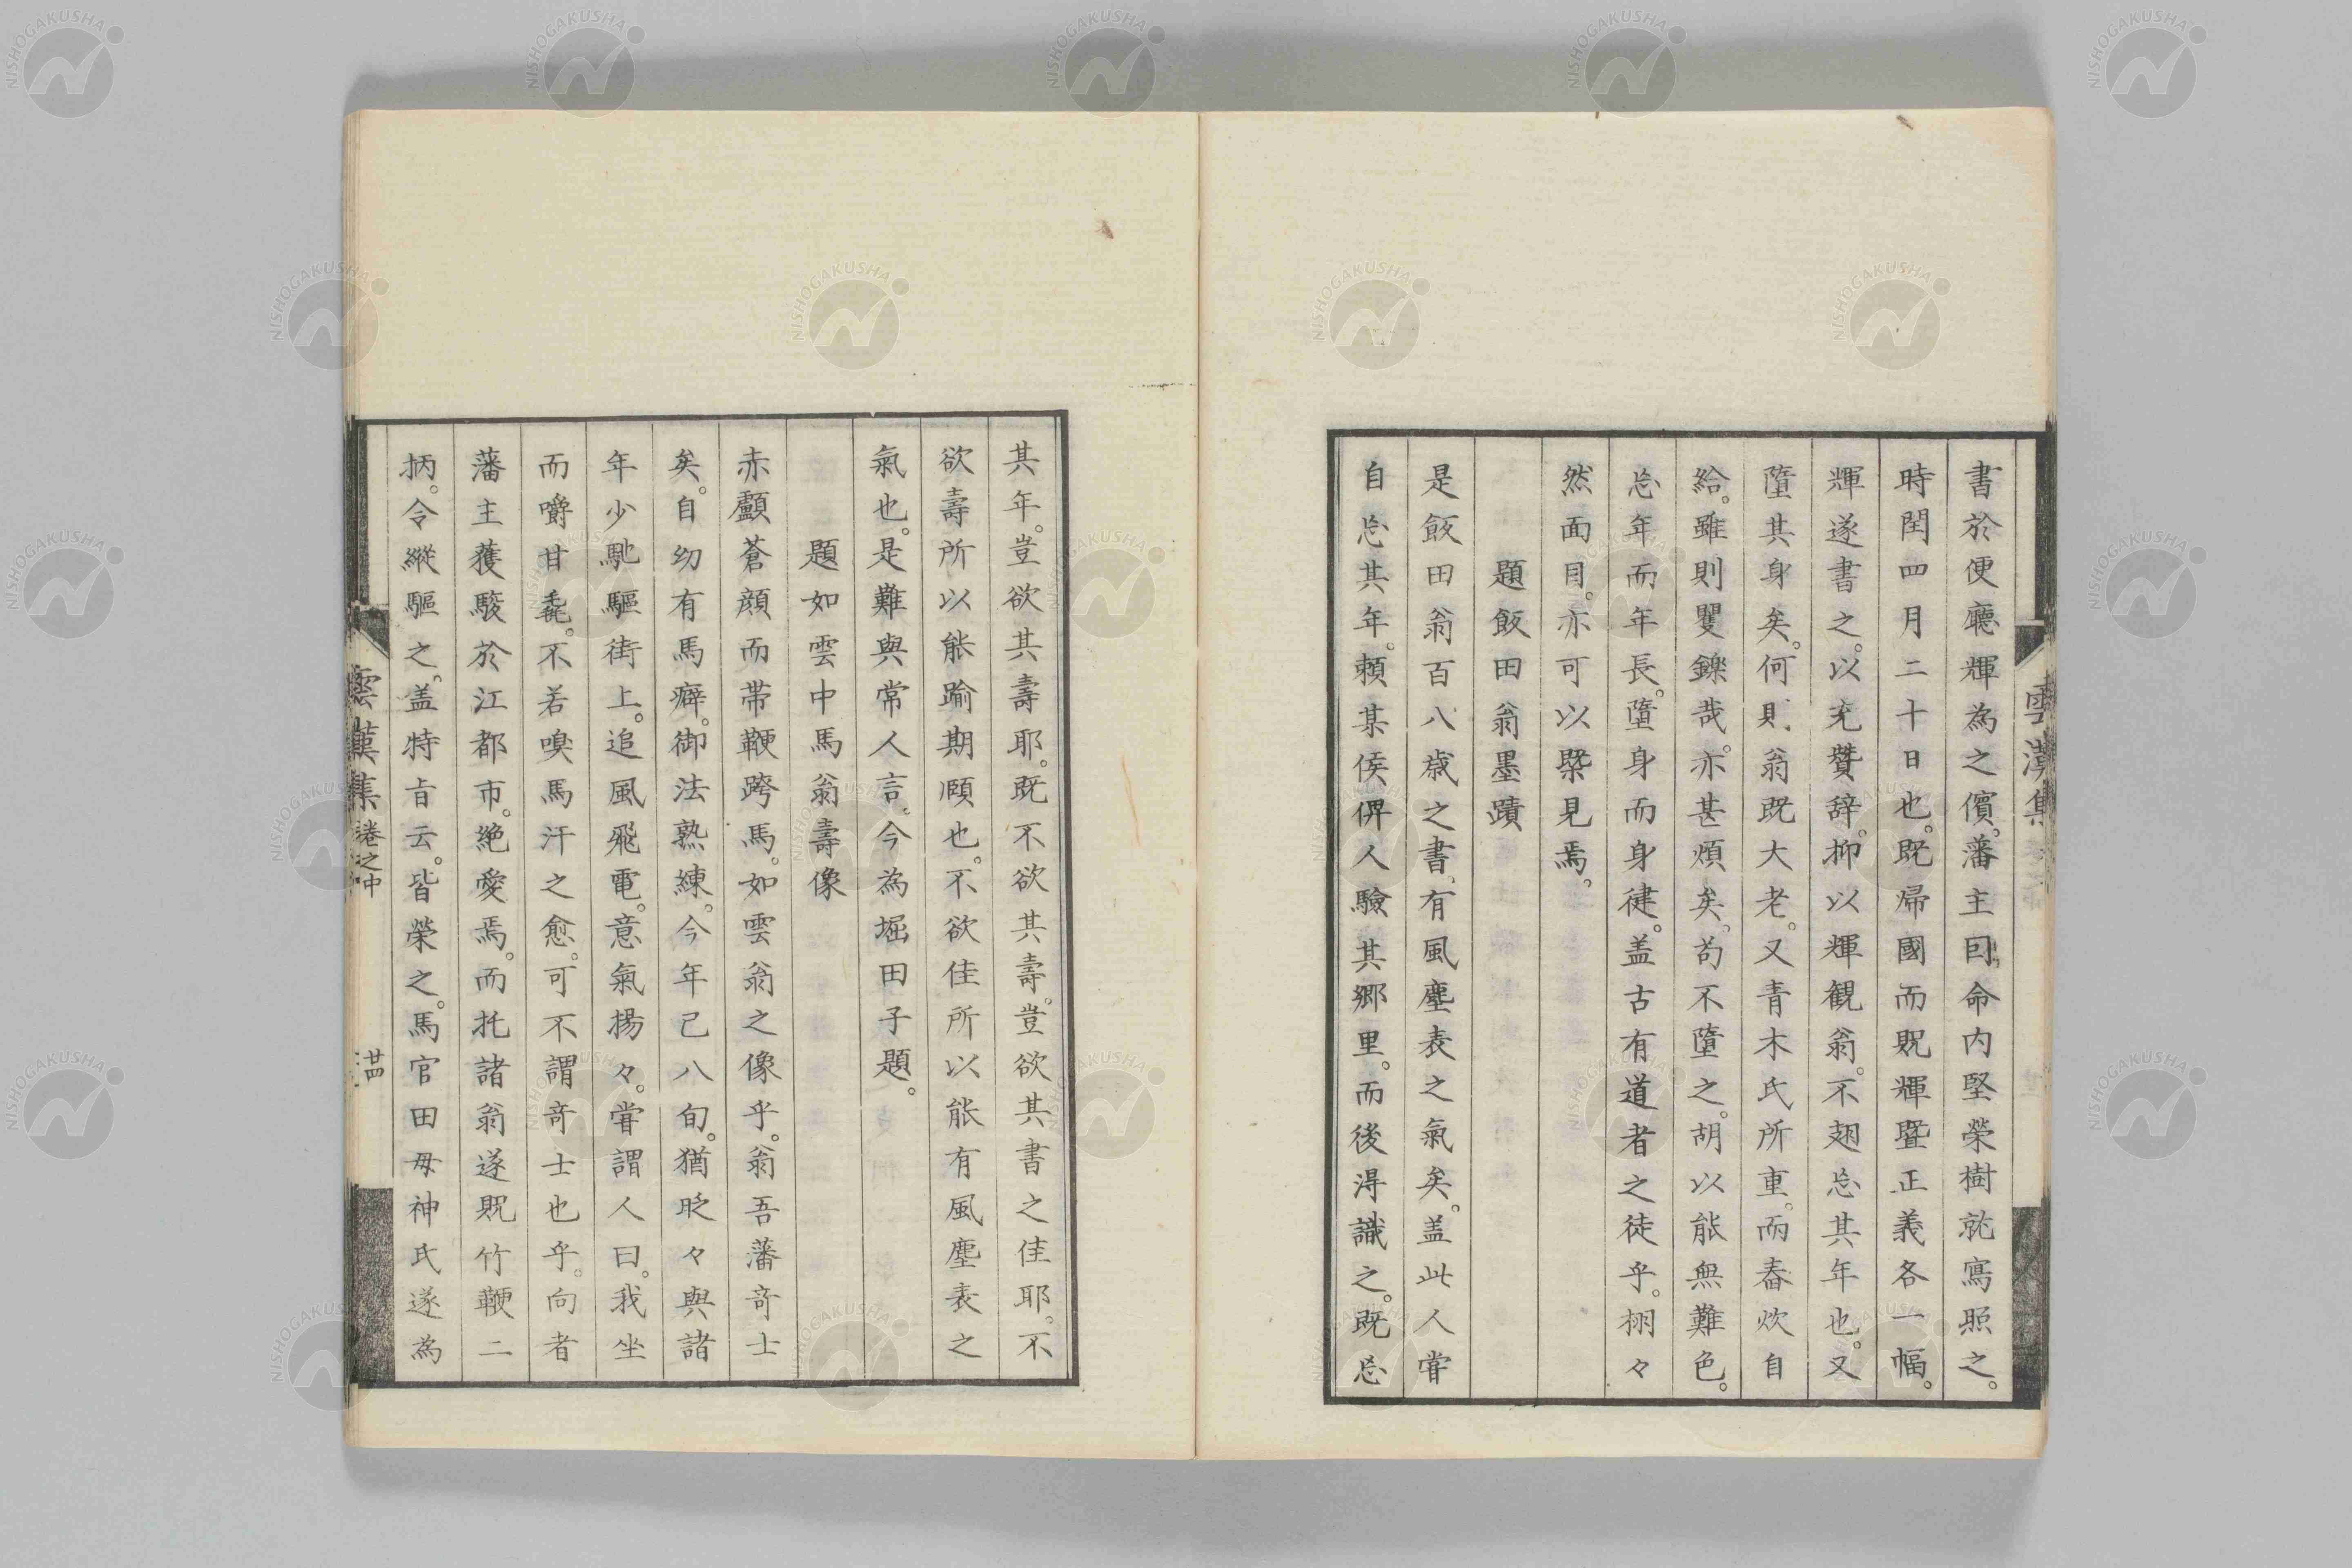 書於便廳輝為之儐。藩主囙命内堅榮樹就寫照之。
時閏四月二十日也。既帰國而貺輝曁正義各一幅。
輝遂書之。以充贊辞。抑以輝観翁。不翅忘其年也。又
墮其身矣。何則翁既大老。又青木氏所重。而舂炊自
給。雖則矍鑠哉。亦甚煩矣。苟不墮之。胡以能無難色。
忘年而年長。墮身而身健。盖古有道者之徒乎。栩々
然面目。亦可以槩見焉。
題飯田翁墨蹟
是飯田翁百八歳之書、有風塵表之氣矣。盖此人甞
自忘其年。頼某侯俾人驗其郷里。而後淂識之。既忘
雲漢集
其年。豈欲其壽耶。既不欲其壽。豈欲其書之佳耶。不
欲壽所以能踰期頥也。不欲佳所以能有風塵表之
氣也。是難與常人言。今為堀田子題。
題如雲中馬翁壽像
赤顱蒼顔而帯鞭跨馬。如雲翁之像乎。翁吾藩竒士
矣。自幼有馬癖。御法熟練。今年已八旬。猶眨々與諸
年少馳驅街上。追風飛電。意氣揚々。甞謂人曰。我坐
而嚼甘毳。不若嗅馬汗之愈。可不謂竒士也乎。向者
藩主獲駿於江都市。絶愛焉。而托諸翁遂貺竹鞭二
柄。令縱驅之。盖特旨云。皆榮之。馬官田毋神氏遂為
雲漢集 巻之中 廿四
NISHOGAKUSHA